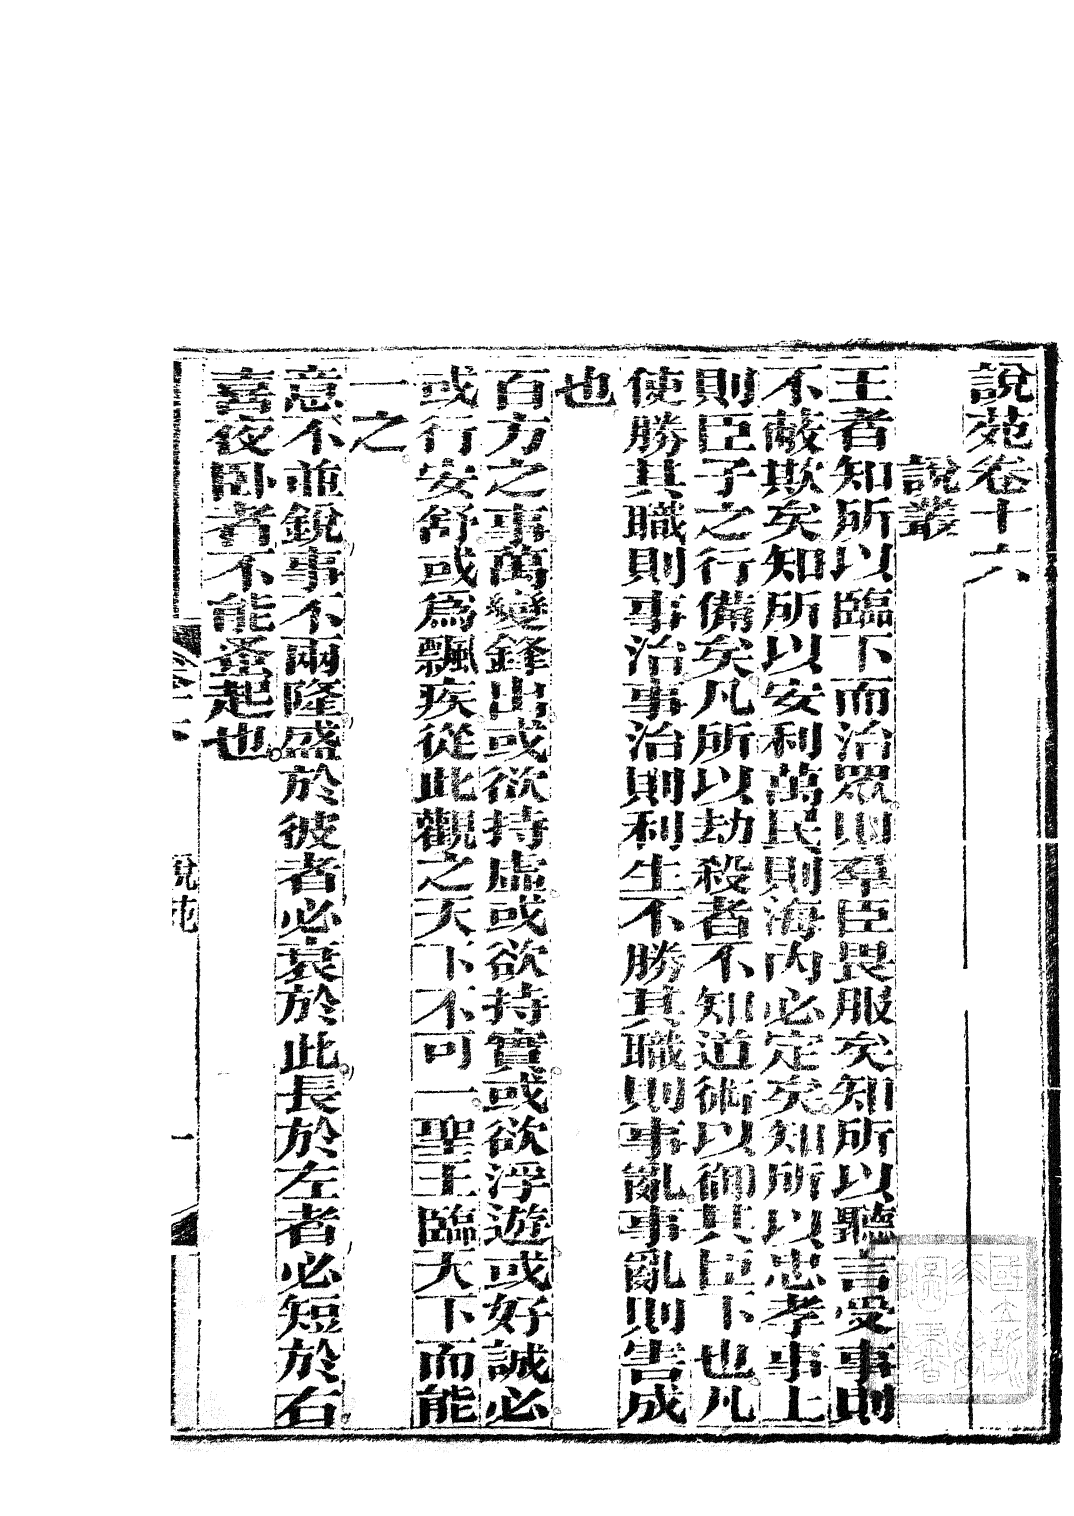 說苑卷十六
說叢
王者知所以臨下而治眾則羣臣畏服矣知所以聽言受事則
不蔽欺矣知所以安利萬民則海內必定矣知所以忠孝事上
則臣子之行備矣凡所以劫殺者不知道術以御其臣下也凡
使勝其職則事治事治則利生不勝其職則事亂事亂則害成
也
百方之事萬變鋒出或欲持虛或欲持實或欲浮遊或好誠必
或行安舒或爲飄疾從此觀之天下不可一聖王臨天下而能
一之
意不並銳事不兩隆盛於彼者必衰於此長於左者必短於右
喜夜卧者不能蚤起也
說苑
一